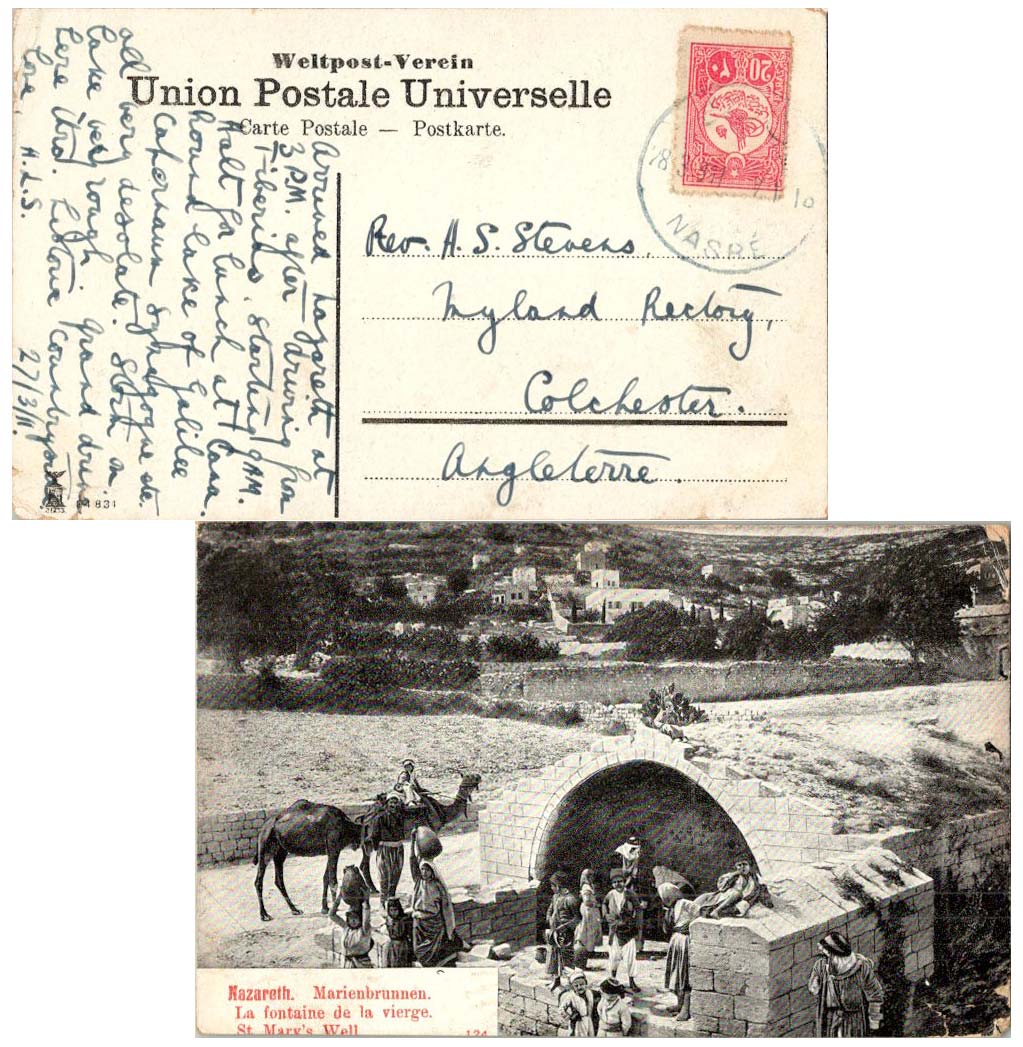 Weltpost-Verein
Union Postale Universelle
Carte Postale — Postkarte.
20
NASRÉ
Arrived Nazareth at
3 P.M. after driving from
Tiberias, starting 9 A.M.
Halt for lunch at Cana.
Round Lake of Galilee
Capernaum synagogue etc.
all very desolate. on
Lake very rough grand drive
here
Love H.L.S. 27/3/11.
Rev. H. S. Stevens,
Myland Rectory,
Colchester.
Angleterre.
Nazareth. Marienbrunnen.
La fontaine de la vierge.
St. Mary's Well
124